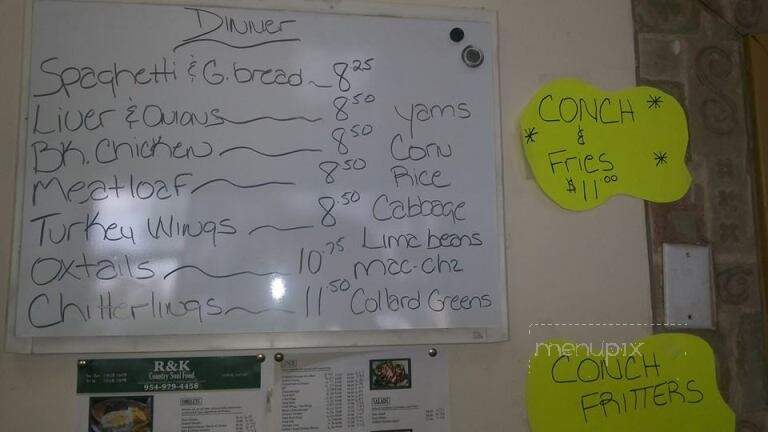 Dinner
Spaghetti & G.bread 8.25
Liver & Onions 8.50
Bk. Chicken 8.50
Meatloaf 8.50
Turkey Wings 8.50
Oxtails 10.75
Chitterlings 11.50
Yams
Corn
Rice
Cabbage
Lima beans
Mac-chz
Collard Greens
CONCH
&
Fries
$11.00
menupix
CONCH
FRITTERS
R&K
Country Soul Food
954-979-4458
OMELETS
SALADS